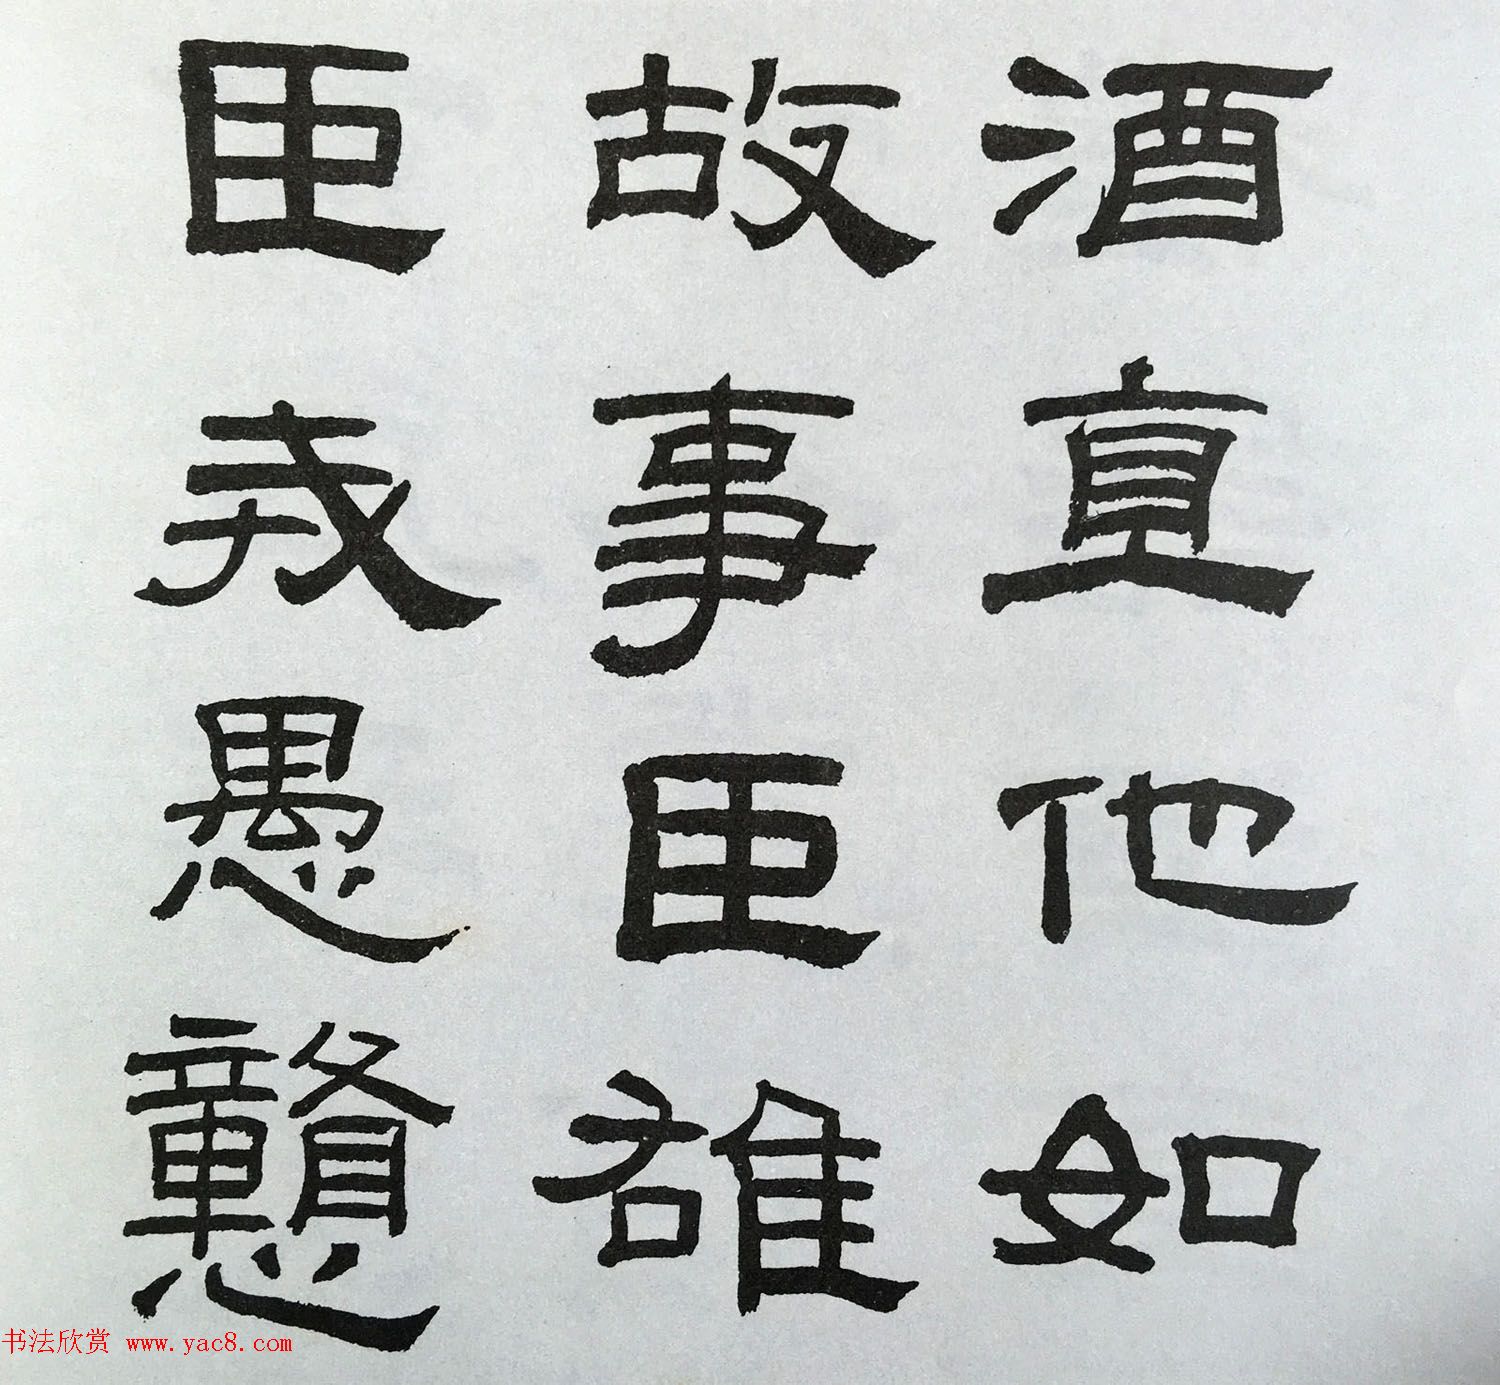 酒直他如
故事臣雄
臣戒愚戇
书法欣赏 www.yac8.com